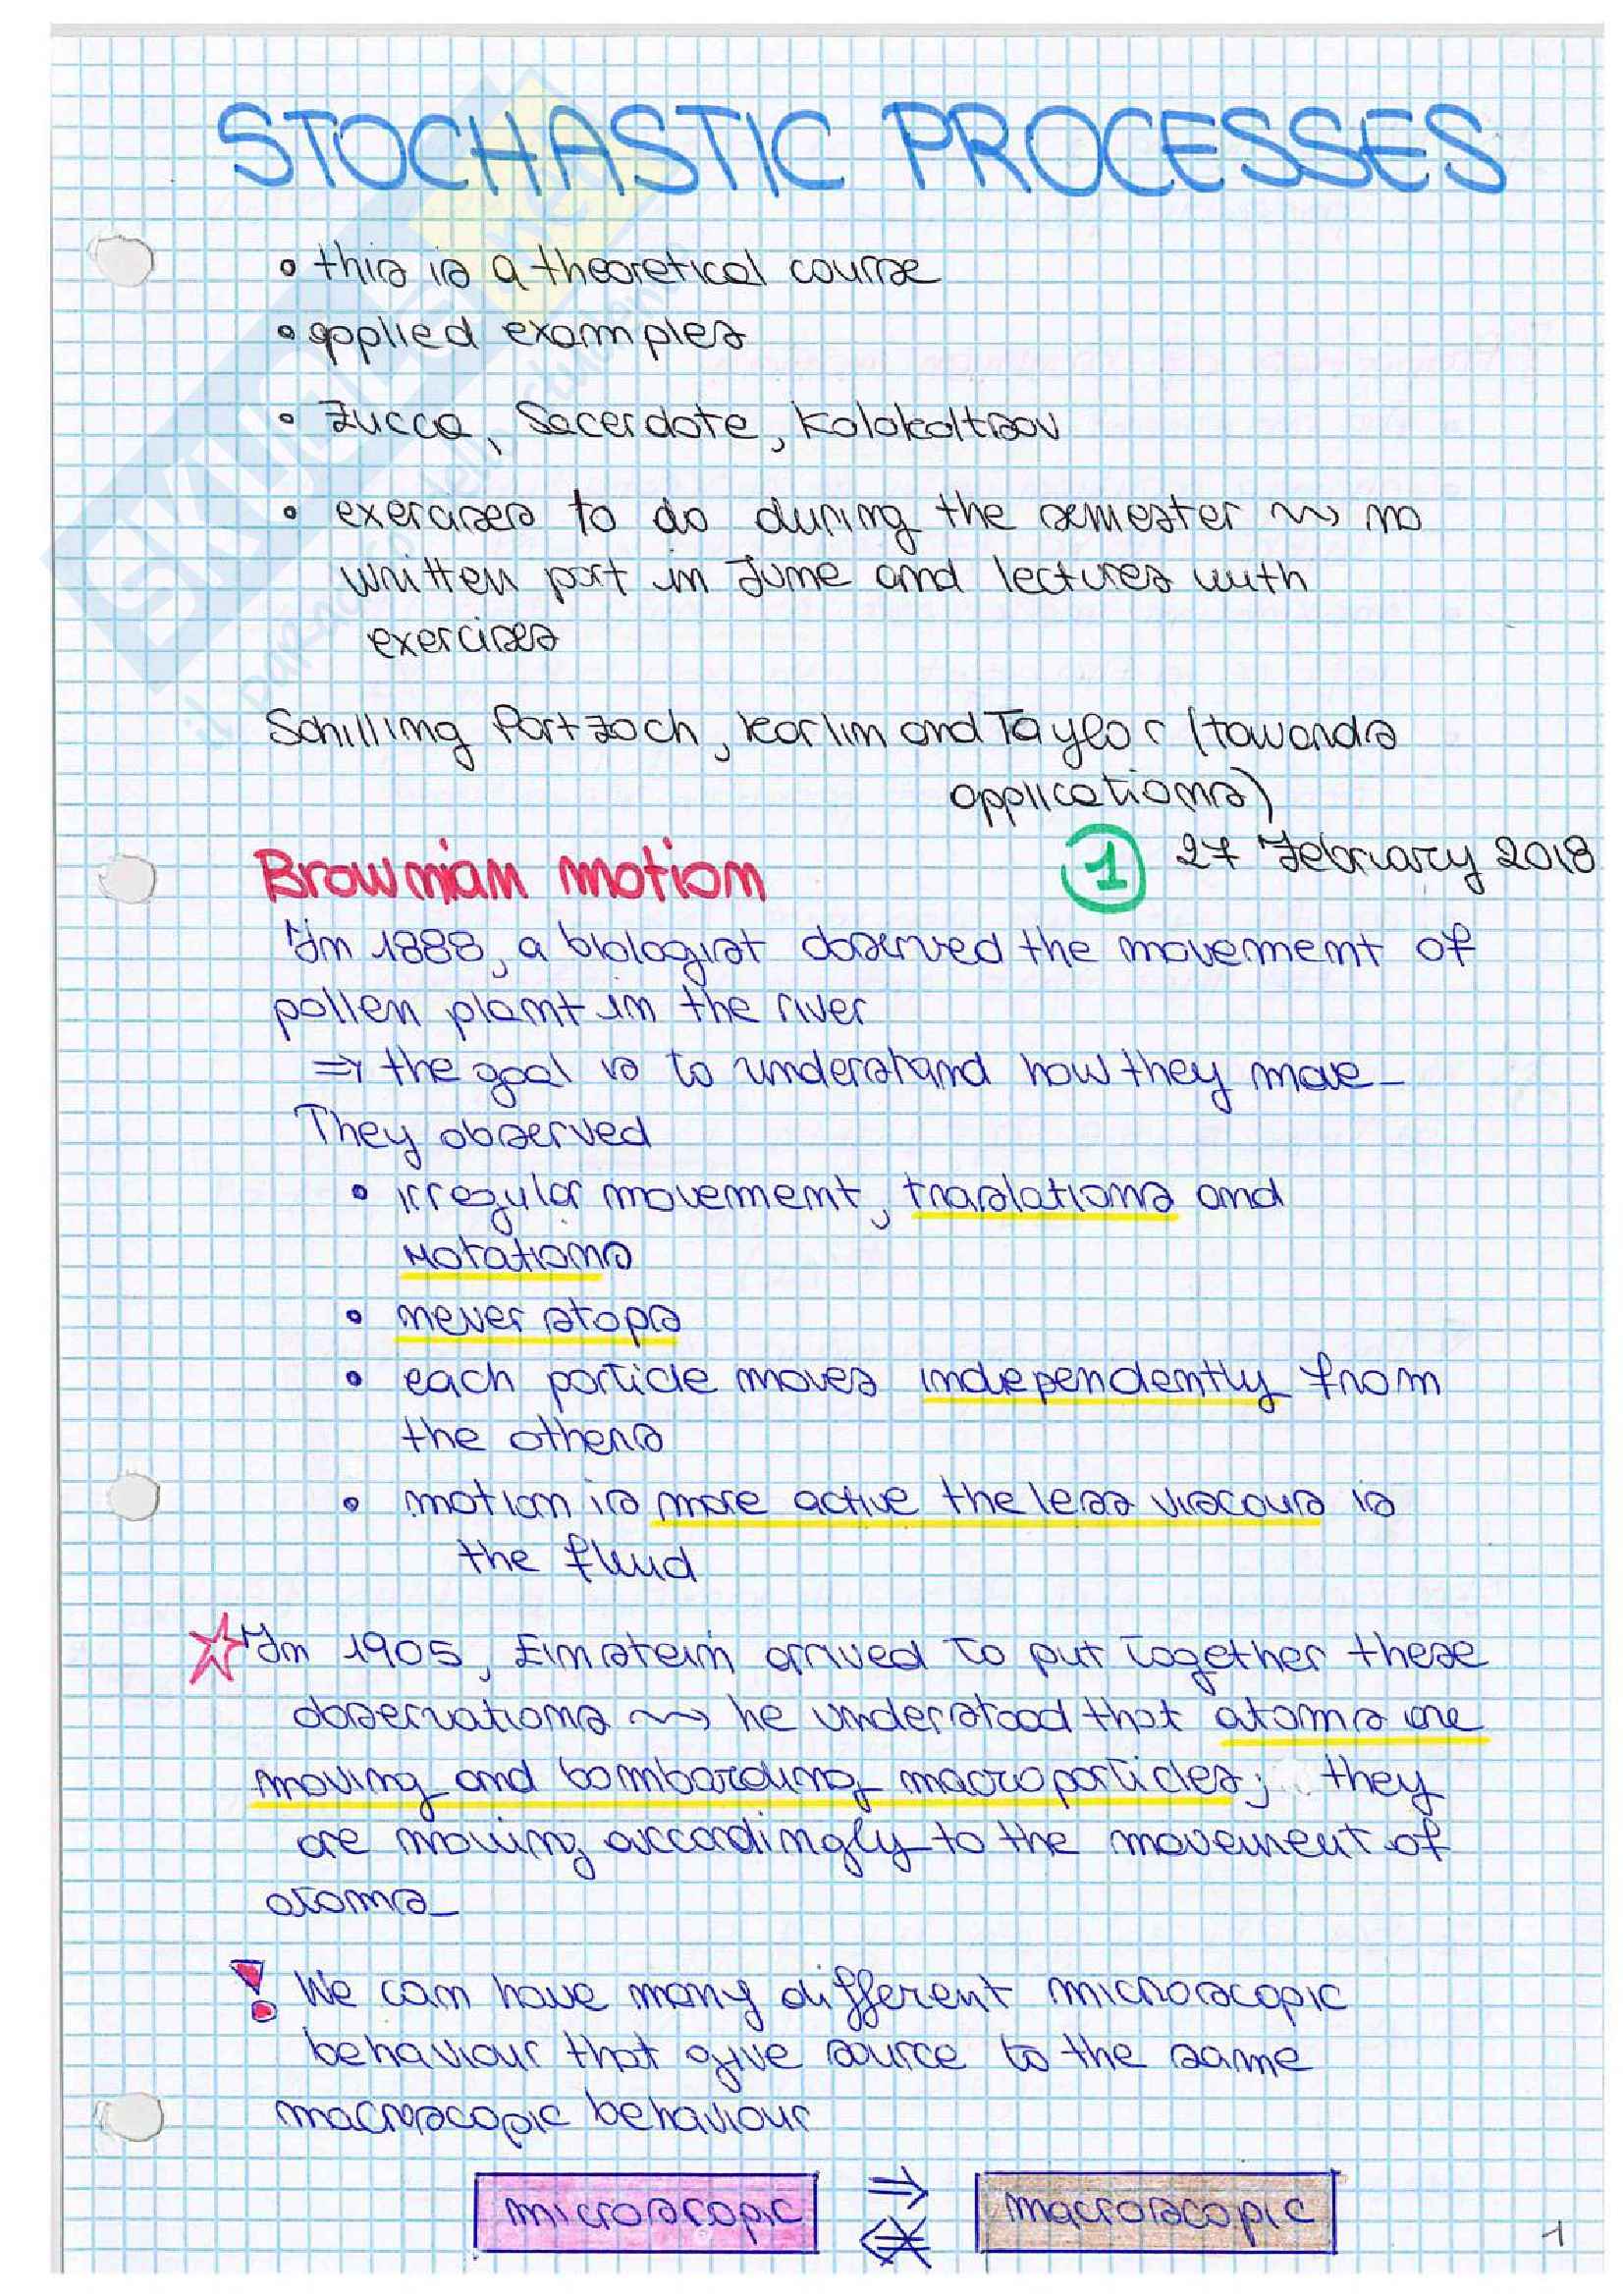 STOCHASTIC PROCESSES
• this is a theoretical course
• applied examples
• Zucca, Sacerdote, Kolokoltsov
• exercises to do during the semester ⇝ no
written part in June and lectures with
exercises
Schilling Partzoch, Karlin and Taylor (towards
applications)
Brownian motion ① 27 February 2018
In 1888, a biologist observed the movement of
pollen plant in the river
⇒ the goal is to understand how they move_
They observed
• irregular movement, traslations and
rotations
• never stops
• each particle moves independently from
the others
• motion is more active the less viscous is
the fluid
☆ In 1905, Einstein arrived to put together these
observations ⇝ he understood that atoms are
moving and bombarding macroparticles; they
are moving accordingly to the movement of
atoms_
! We can have many different microscopic
behaviour that give source to the same
macroscopic behaviour
microscopic ⇒ macroscopic
⇍
1
SKUOLA.net